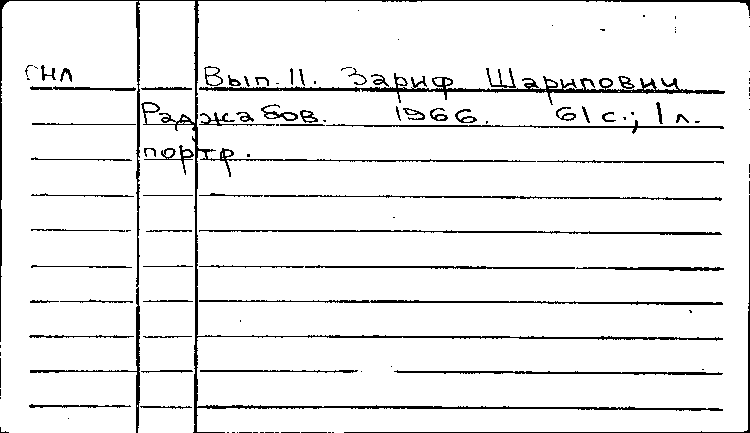 ГНЛ Вып. 11. Зариф Шарипович
Раджабов. 1966. 61 с.; 1 л.
портр.